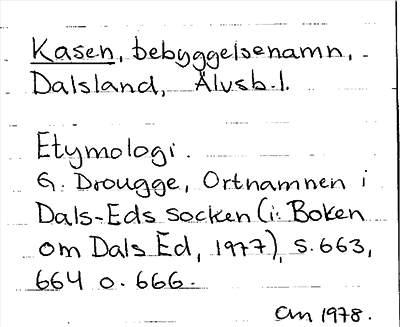 Kasen, bebyggelsenamn,
Dalsland, Älvsb.l.
Etymologi.
G. Drougge, Ortnamnen i
Dals-Eds socken (i: Boken
om Dals Ed, 1977), s. 663,
664 o. 666.
1978.